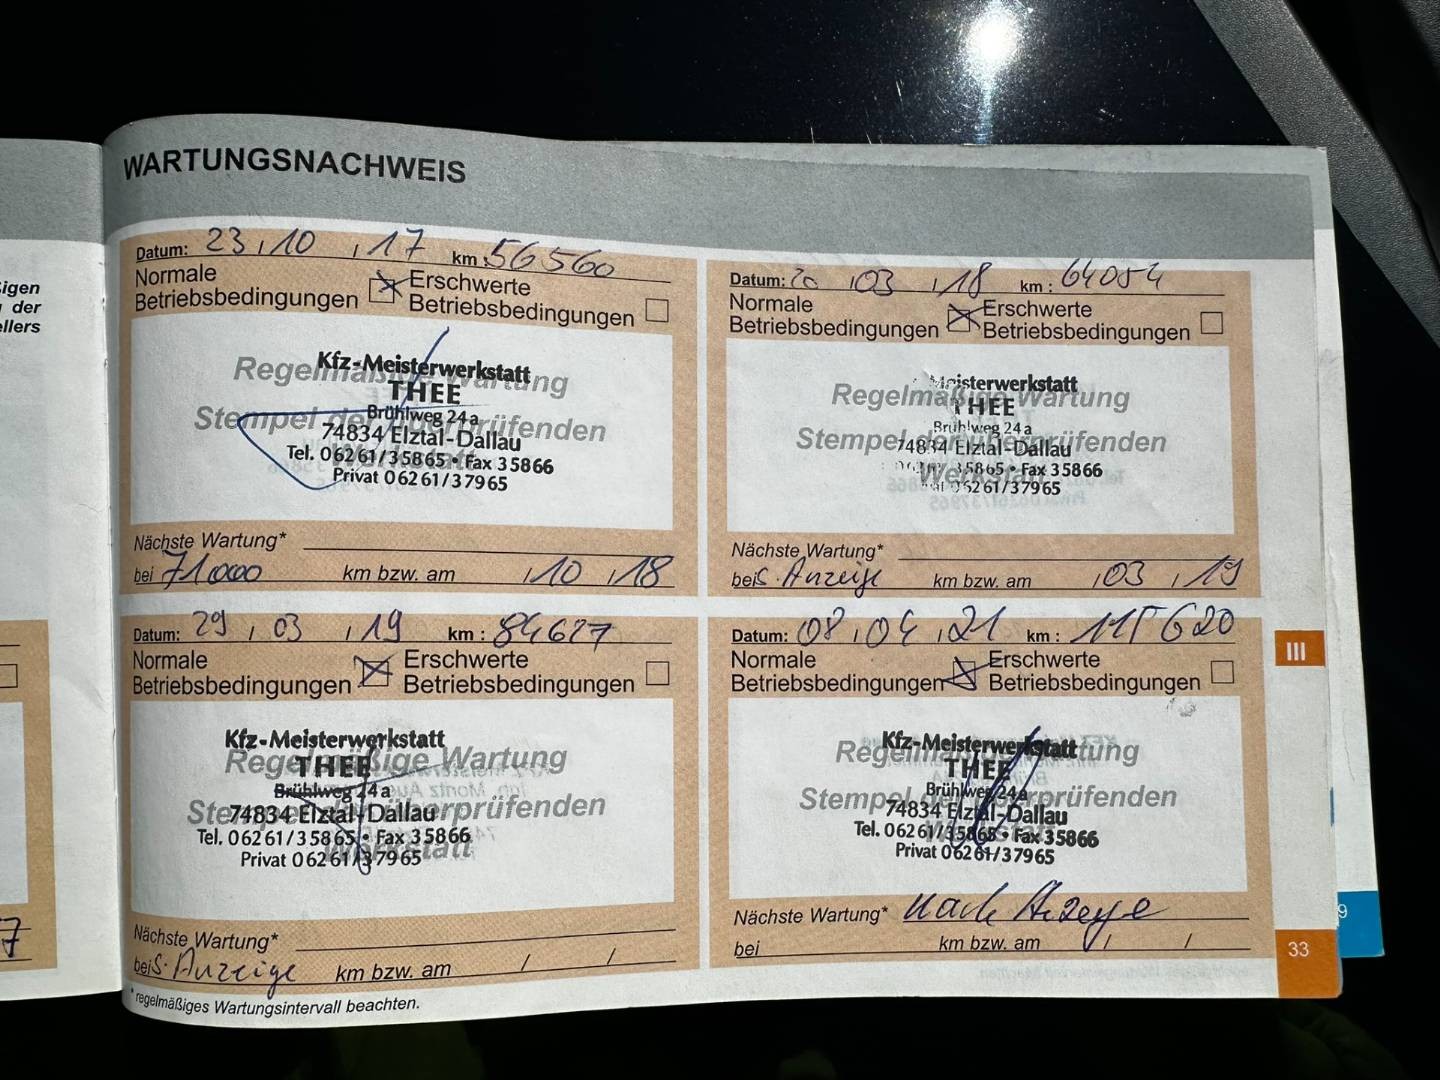 igen
der
ellers
7
WARTUNGSNACHWEIS
Datum: 23 / 10 / 17 km 56560
Normale Betriebsbedingungen Erschwerte Betriebsbedingungen
Regelmäßige Wartung
Stempel der überprüfenden
Werkstatt
Kfz-Meisterwerkstatt
THEE
Brühlweg 24a
74834 Elztal-Dallau
Tel. 06261/35865 • Fax 35866
Privat 06261/37965
Nächste Wartung*
bei 71000 km bzw. am / 10 / 18
Datum: 20 / 03 / 18 km : 64054
Normale Betriebsbedingungen Erschwerte Betriebsbedingungen
Regelmäßige Wartung
Stempel der überprüfenden
Werkstatt
Meisterwerkstatt
THEE
Brühlweg 24a
74834 Elztal-Dallau
35865 • Fax 35866
06261/37965
Nächste Wartung*
bei S. Anzeige km bzw. am / 03 / 19
Datum: 29 / 03 / 19 km : 84627
Normale Betriebsbedingungen Erschwerte Betriebsbedingungen
Regelmäßige Wartung
Stempel der überprüfenden
Werkstatt
Kfz-Meisterwerkstatt
THEE
Brühlweg 24a
74834 Elztal-Dallau
Tel. 06261/35865 • Fax 35866
Privat 06261/37965
Nächste Wartung*
bei S. Anzeige km bzw. am / /
Datum: 08 / 04 / 21 km : 115620
Normale Betriebsbedingungen Erschwerte Betriebsbedingungen
Regelmäßige Wartung
Stempel der überprüfenden
Werkstatt
Kfz-Meisterwerkstatt
THEE
Brühlweg 24a
74834 Elztal-Dallau
Tel. 06261/35865 • Fax 35866
Privat 06261/37965
Nächste Wartung* nach Anzeige
bei km bzw. am / /
* regelmäßiges Wartungsintervall beachten.
III
33
9